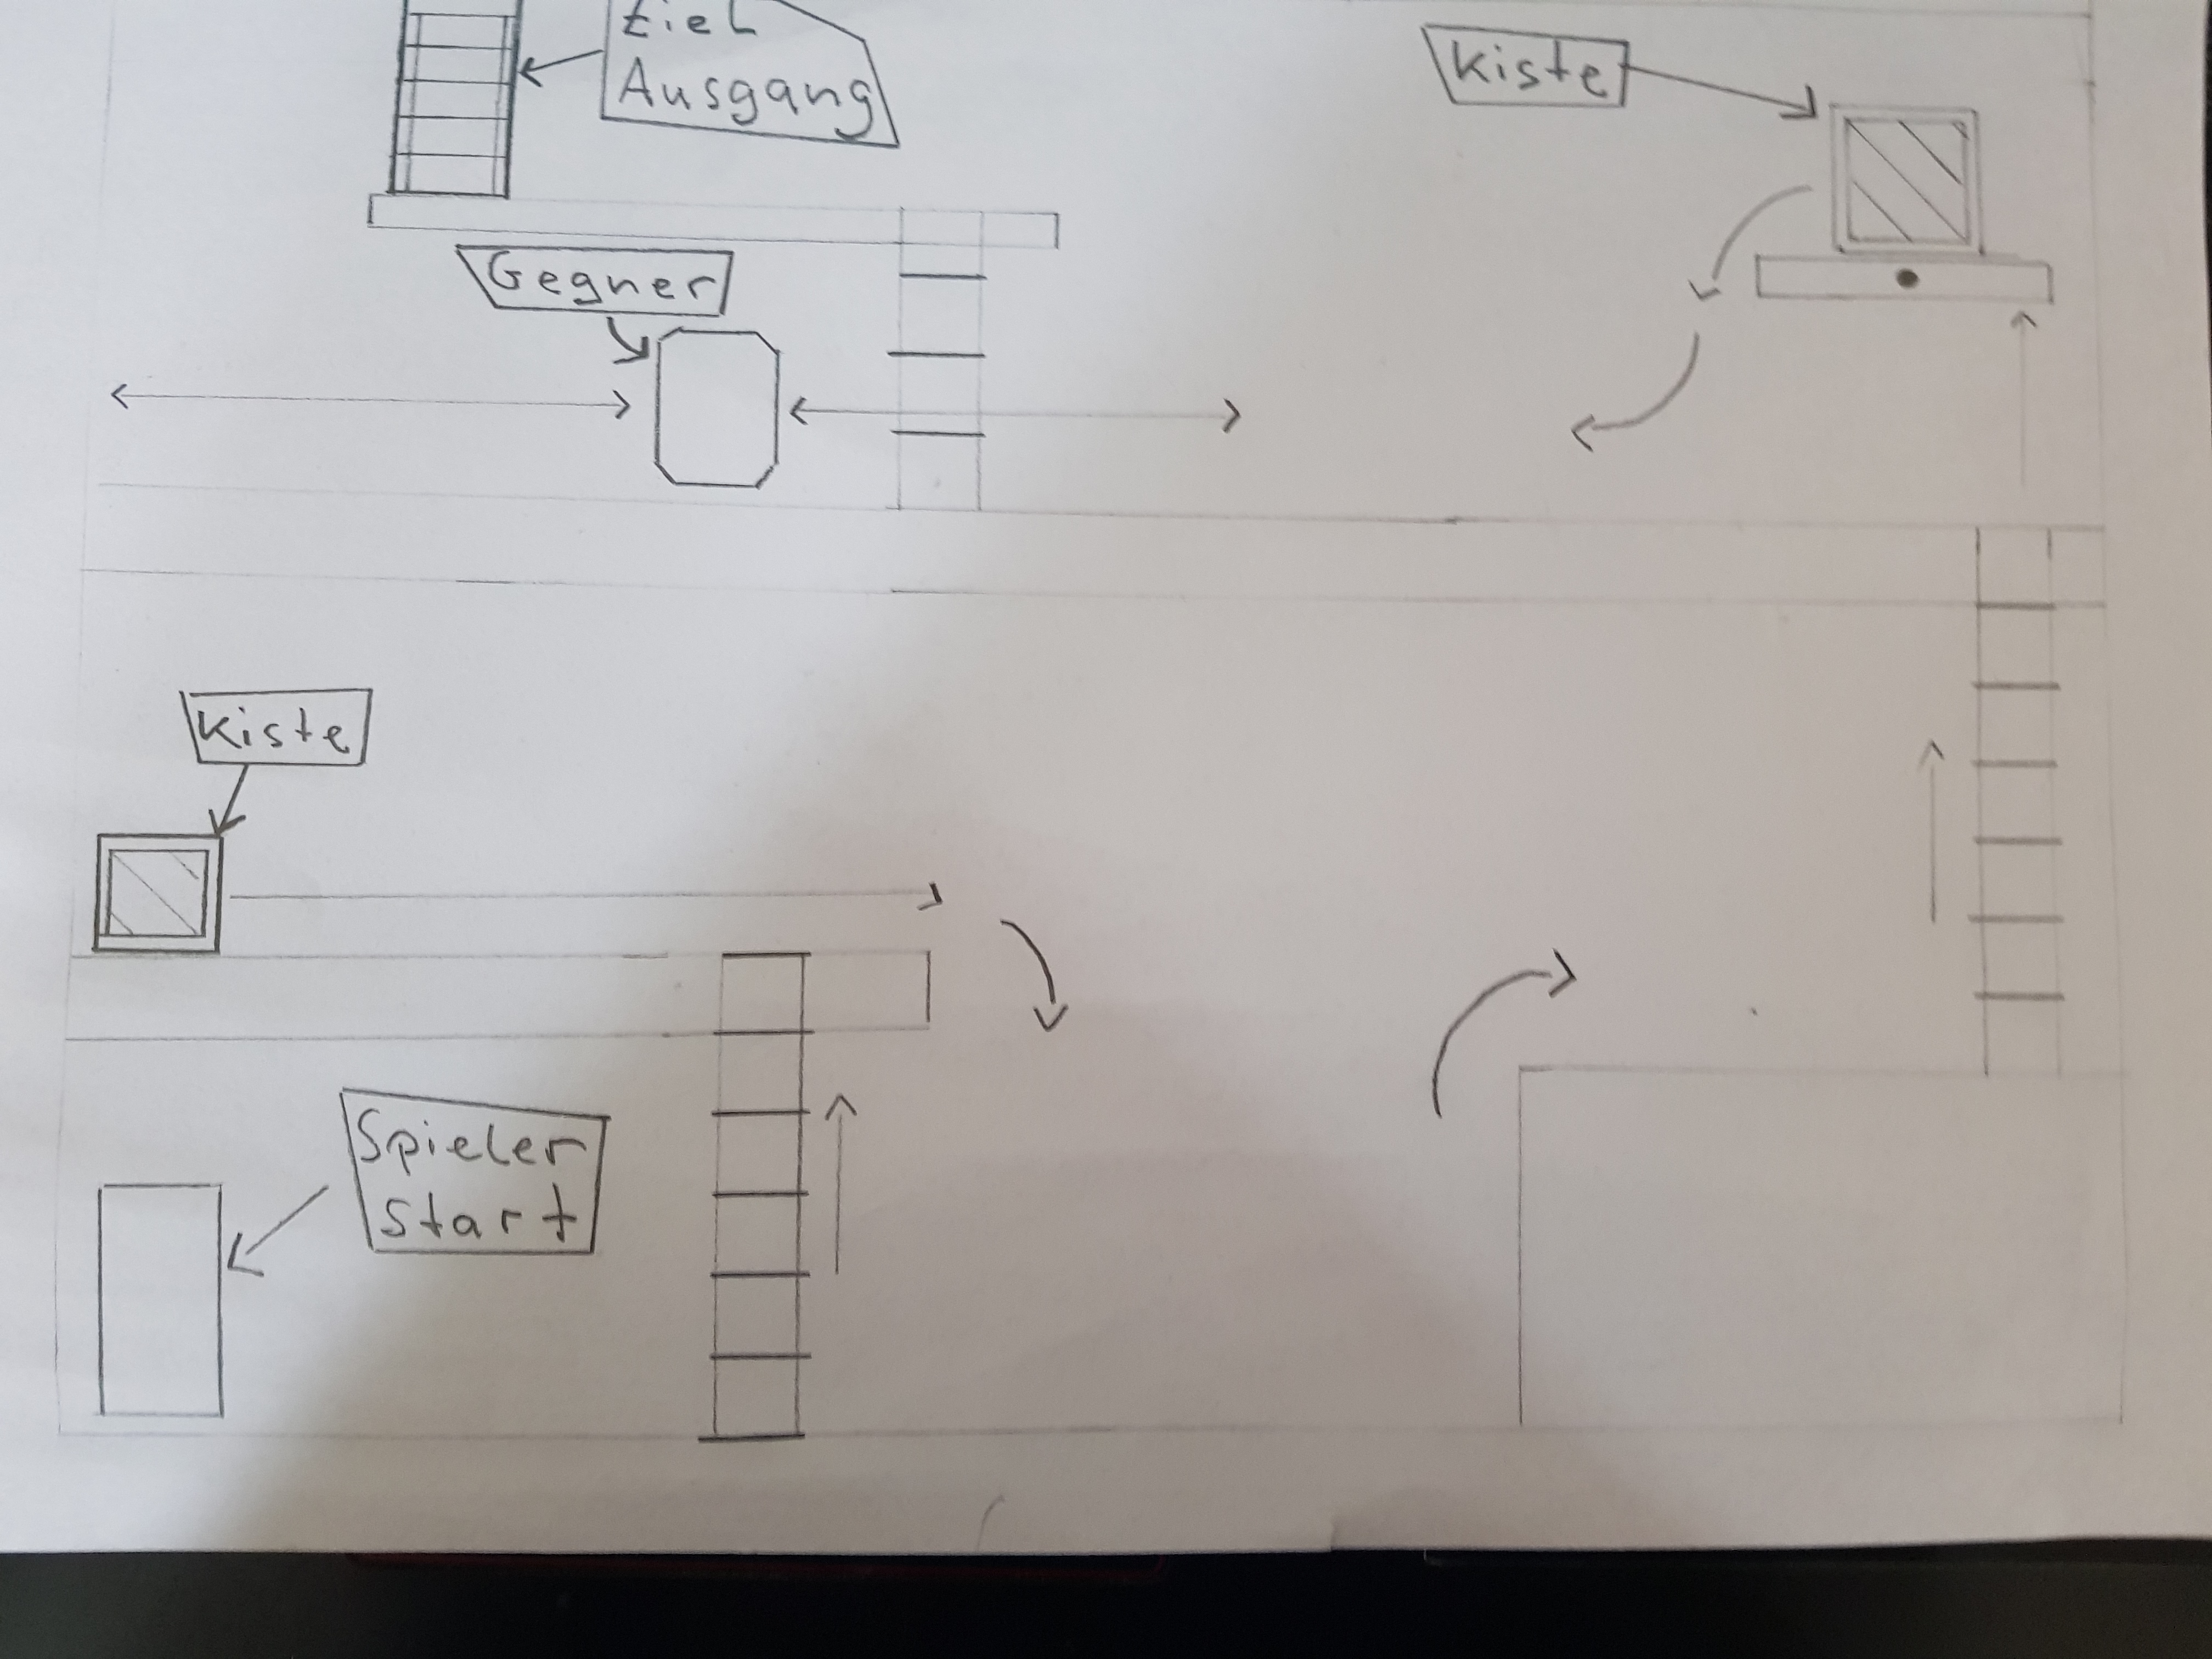 Ziel
Ausgang
Kiste
Gegner
Kiste
Spieler
Start